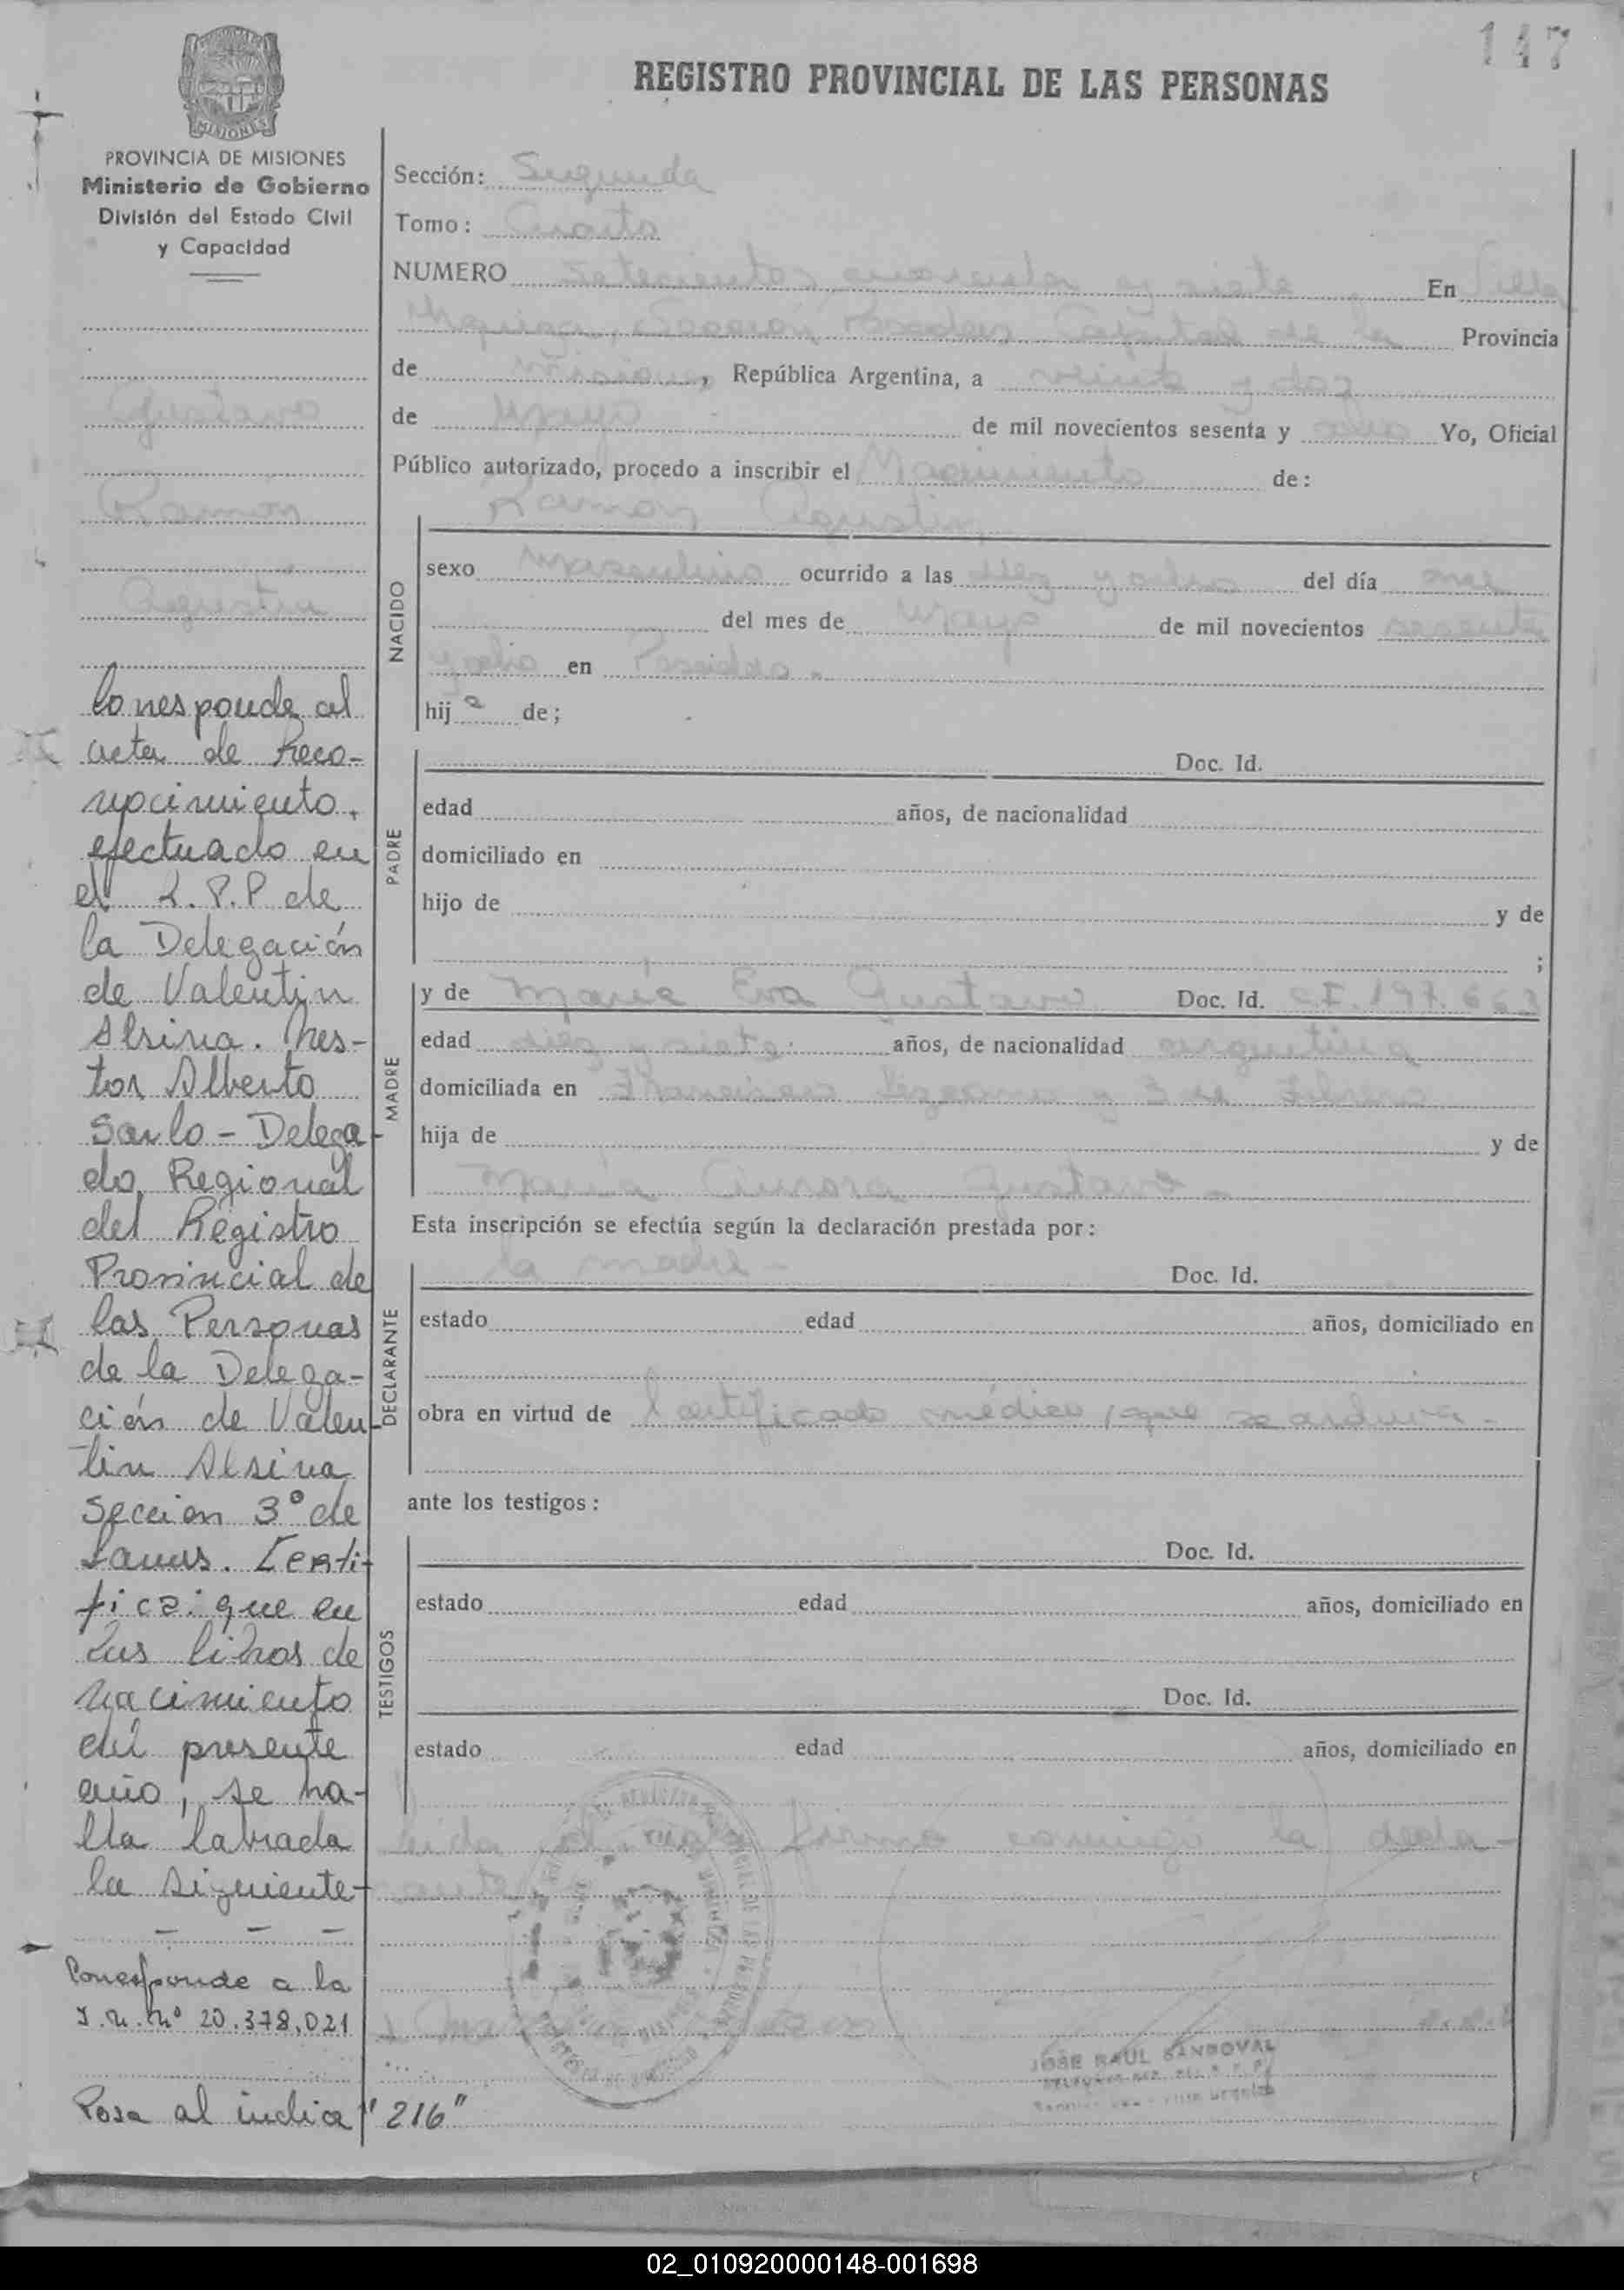 147
REGISTRO PROVINCIAL DE LAS PERSONAS
MISIONES
PROVINCIA DE MISIONES
Ministerio de Gobierno
División del Estado Civil
y Capacidad
Gustavo
Ramón
Agustín
Corresponde al
acta de Reco-
nocimiento,
efectuado en
el R.P.P de
la Delegación
de Valentin
Alsina. Nes-
tor Alberto
Sarlo - Delega-
do Regional
del Registro
Provincial de
las Personas
de la Delega-
ción de Valen-
tin Alsina
Seccion 3° de
Lanus. Certi-
fica: que en
los libros de
nacimiento
del presente
año, se ha-
lla labrada
la siguiente-
- - -
Corresponde a la
I.N. N° 20.378.021
Pasa al indice "216"
Sección: Segunda
Tomo: Cuarto
NUMERO Setecientos cuarenta y siete En Villa
Urquiza, Sección Posadas Capital de la Provincia
de Misiones, República Argentina, a veinte y dos
de Mayo de mil novecientos sesenta y ocho Yo, Oficial
Público autorizado, procedo a inscribir el Nacimiento de:
Ramón Agustín
NACIDO
sexo Masculino ocurrido a las diez y ocho del día once
del mes de Mayo de mil novecientos sesenta
y ocho en Posadas.
hijo de;
PADRE
Doc. Id.
edad años, de nacionalidad
domiciliado en
hijo de y de
;
MADRE
y de María Eva Gustavo Doc. Id. C.I. 197.663
edad diez y siete años, de nacionalidad argentina
domiciliada en Francisco y 3 de Febrero
hija de y de
María Aurora Gustavo -
Esta inscripción se efectúa según la declaración prestada por:
DECLARANTE
la madre - Doc. Id.
estado edad años, domiciliado en
obra en virtud de certificado médico, que se archiva -
ante los testigos:
TESTIGOS
Doc. Id.
estado edad años, domiciliado en
Doc. Id.
estado edad años, domiciliado en
Leida el acta firma conmigo la decla-
rante
JOSE RAUL SANDOVAL
02_010920000148-001698